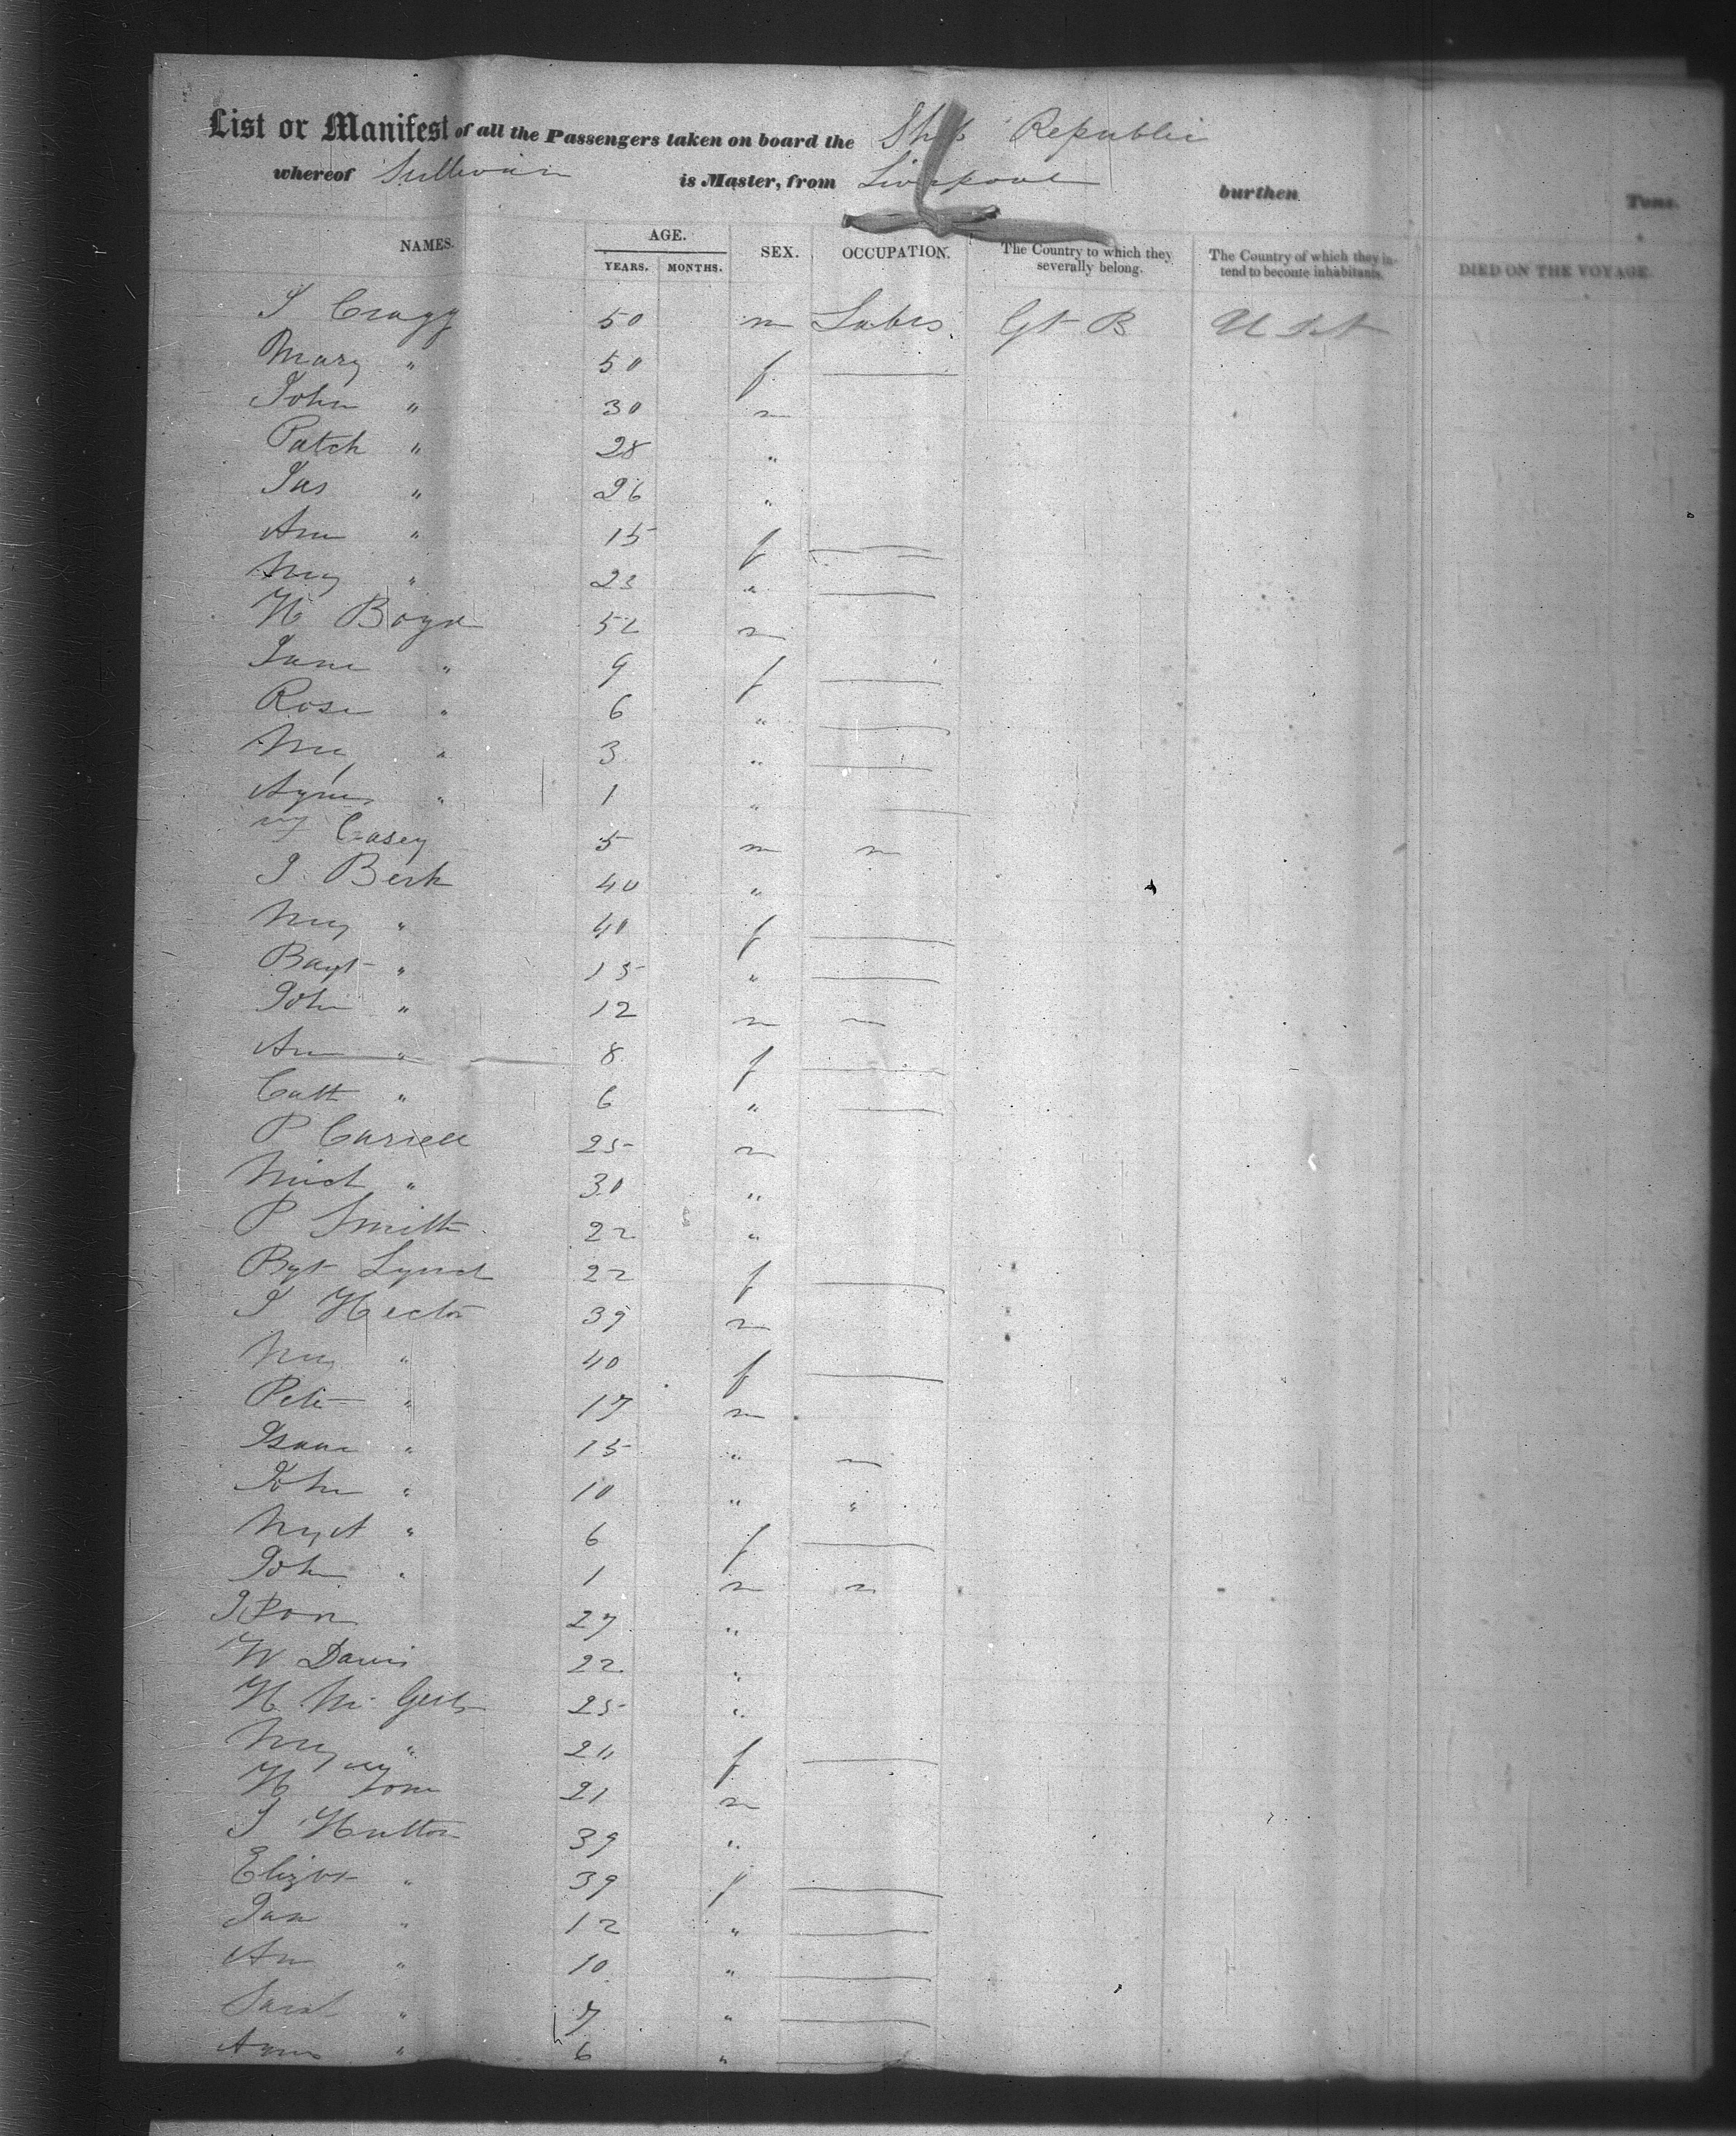 List or Manifest of all the Passengers taken on board the Ship Republic
whereof Sullivan is Master, from Liverpool burthen Tons.
NAMES. AGE. SEX. OCCUPATION. The Country to which they severally belong. The Country of which they intend to become inhabitants. DIED ON THE VOYAGE.
YEARS. MONTHS.
50 m Labrs. Gt B U St
Mary " 50 f
John " 30 m
Patck " 28 "
Jas " 26 "
Ann " 15 f
My " 23 "
H Boyd 52 m
Jane " 9 f
Rose " 6 "
My " 3 "
Agnes " 1 "
Casey 5 m
J. Berk 40 "
My " 40 f
" 15 "
John " 12 m
Ann " 8 f
Cath " 6 "
P Carrell 25 m
Mich " 30 "
P Smith 22 "
Bgt Lynch 22 f
J Hector 39 m
My " 40 f
Peter " 17 m
Isaac " 15 "
John " 10 " "
Mgt " 6 f
John " 1 m
27 "
W Davis 22 "
25 "
My " f
H 21 m
J Hutton 39 "
Elizbt " 39 f
Jane " 12 "
Ann " 10 "
Sarah " 7 "
" 6 "